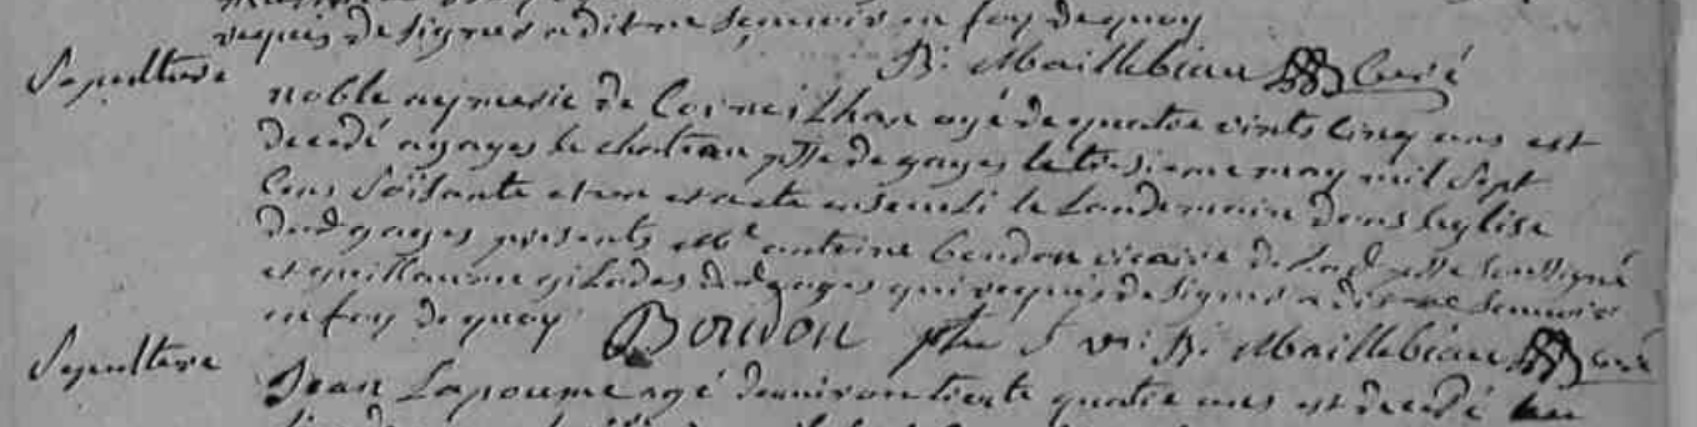 requis de signer a dit ne scavoir en foy de quoy
B: Maillebiau Curé
Sepulture
noble aymeric de Corneilhan agé de quatre vints cinq ans est
decedé a gages le chateau psse de gages le troisieme may mil sept
cens soissante et un et a eté enseveli le landemain dans leglise
dud gages presents Mr antoine boudon vicaire de lad psse soussigné
et guillaume giladas dud gages qui requis de signer a dit ne scavoir
en foy de quoy Boudon ptre vic: B: Maillebiau Curé
Sepulture
Jean Lapoume agé denviron trente quatre ans est decedé